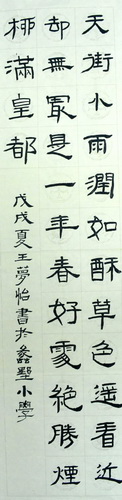 天街小雨潤如酥草色遥看近
却無最是一年春好處絶勝煙
栁滿皇都
戊戌夏王夢怡書於蠡墅小學